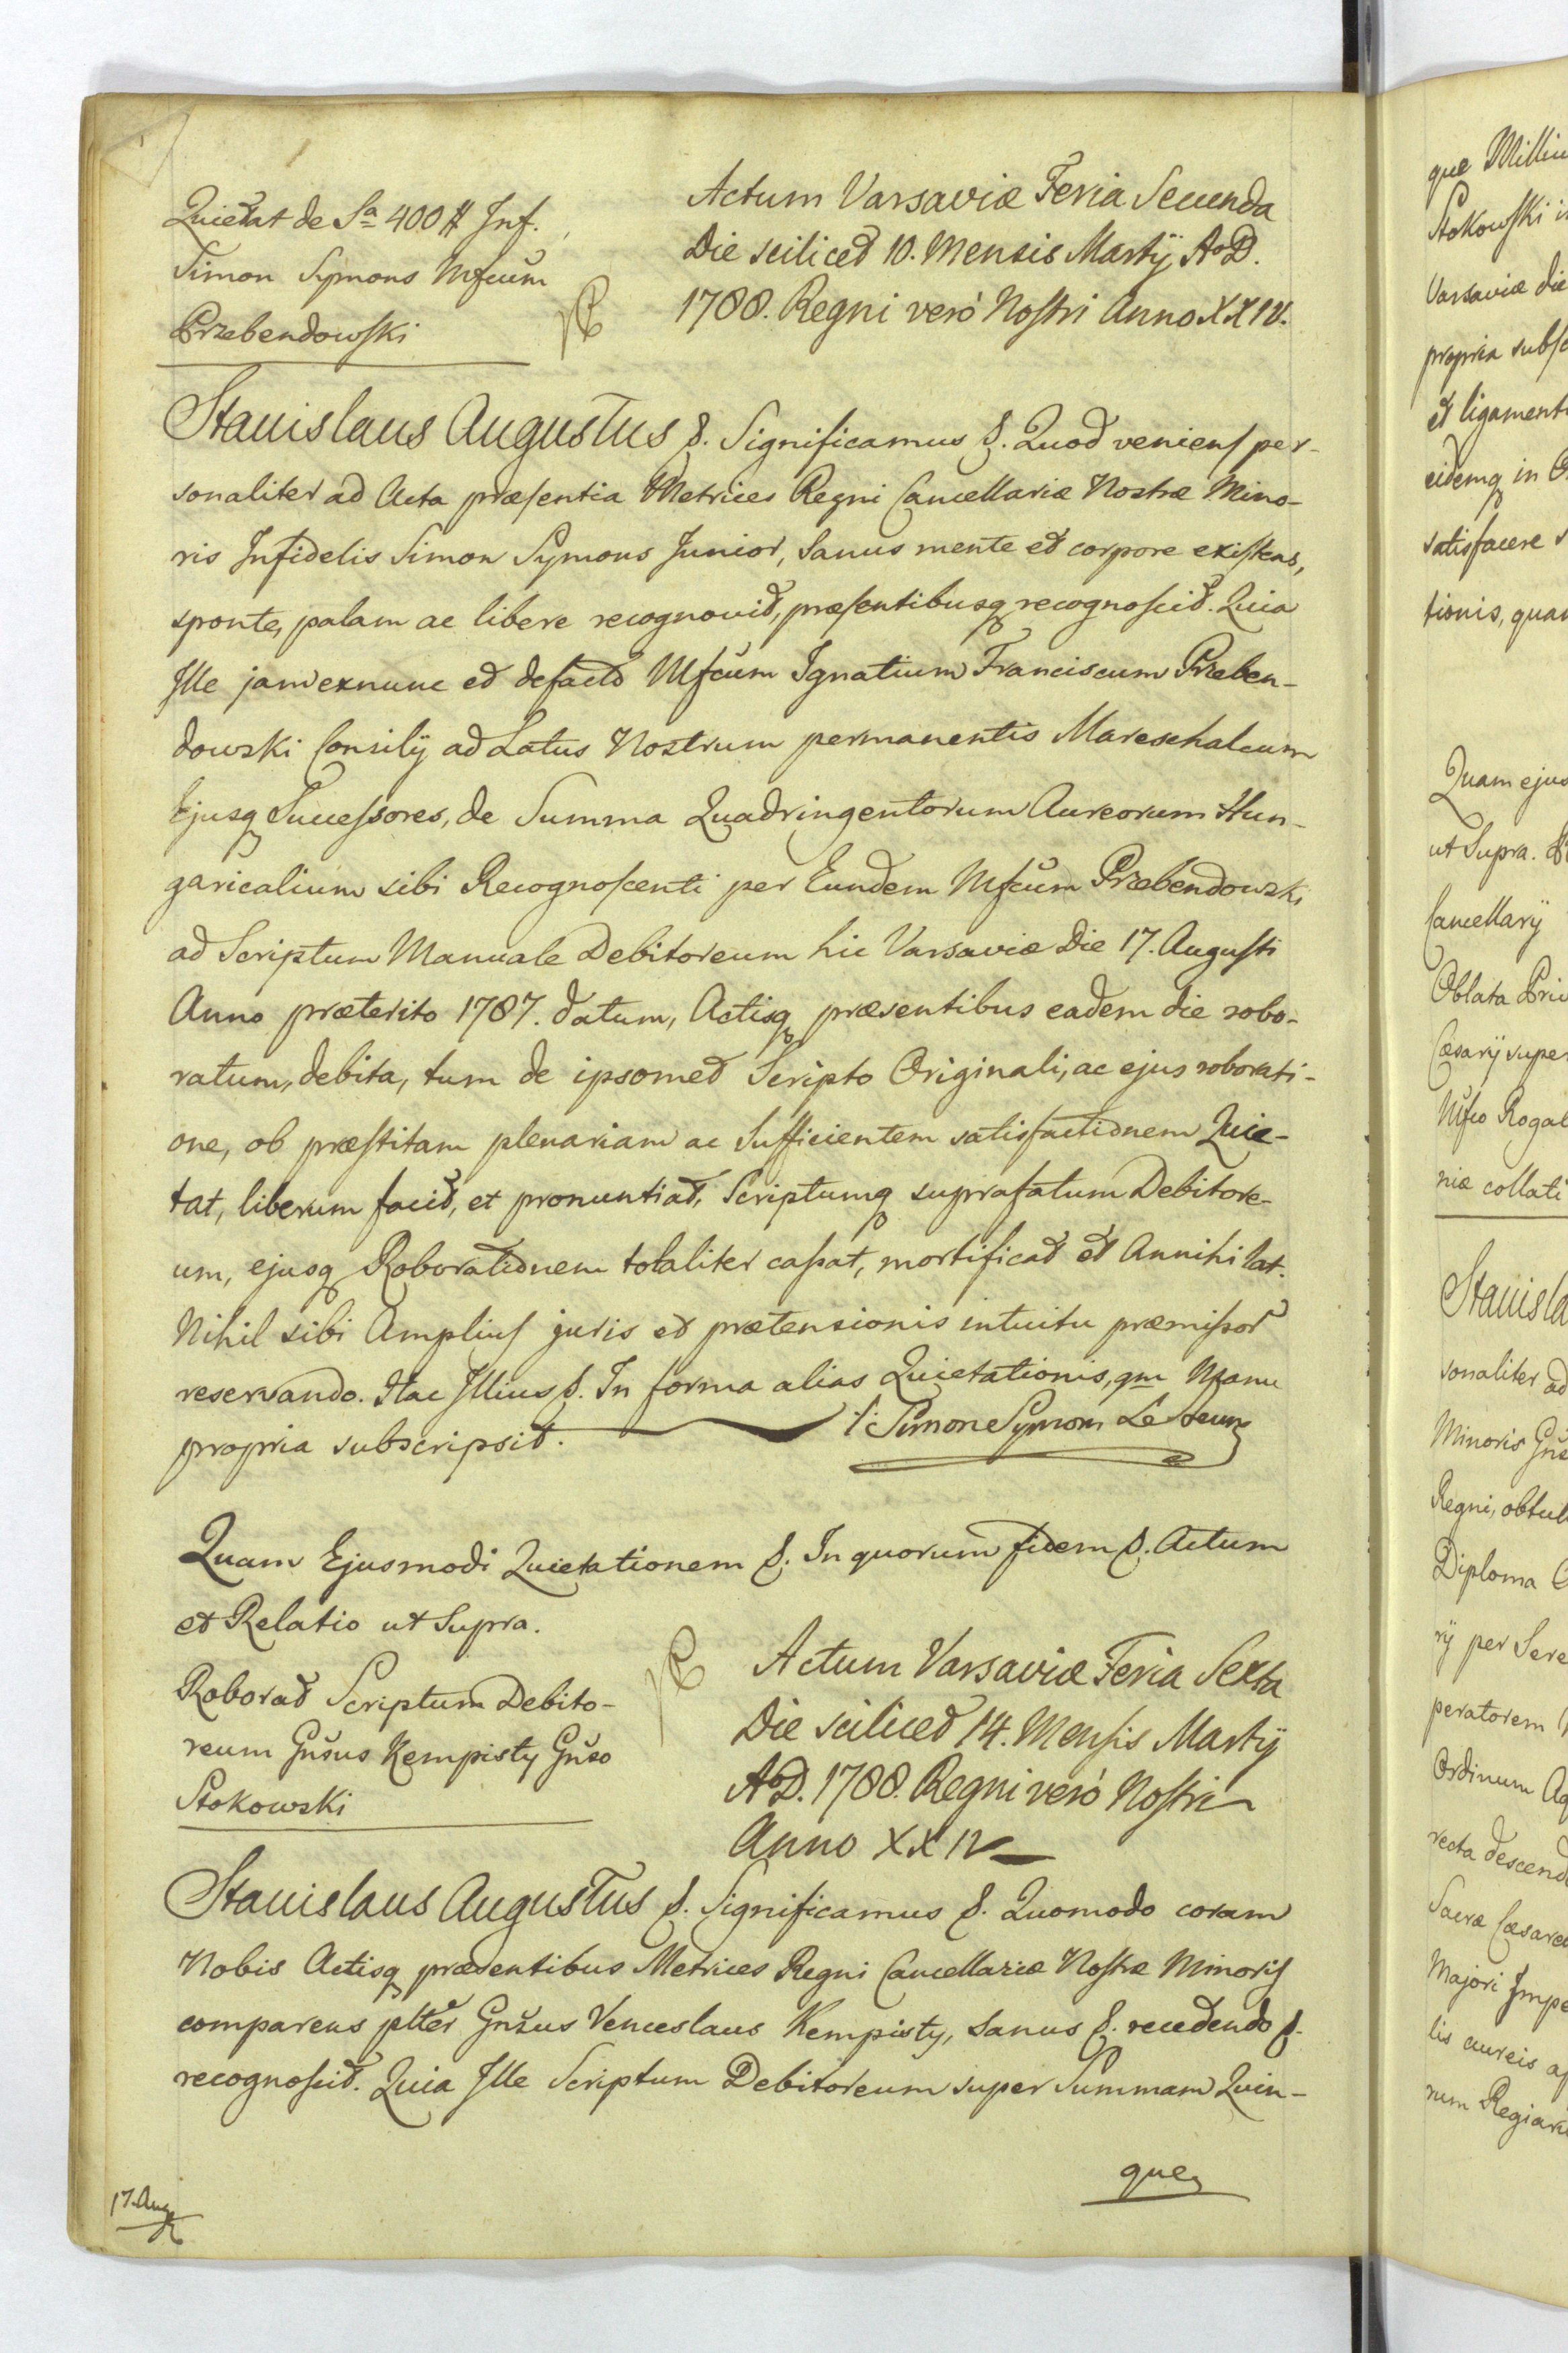 Quietat de Sa 400 # Inf.
Simon Symons Mfcum
Przebendowski
Actum Varsaviæ Feria Secunda
Die scilicet 10. Mensis Martij AoD.
1788. Regni veró Nostri Anno XXIV.
Stanislaus Augustus &. Significamus &. Quod veniens per-
sonaliter ad Acta præsentia Metrices Regni Cancellariæ Nostræ Mino-
ris Infidelis Simon Symons Junior, Sanus mente et corpore existens,
sponte, palam ac libere recognovit, præsentibusq recognoscit. Quia
Ille jam exnunc et defacto Mfcum Ignatium Franciscum Przeben-
dowski Consilij ad Latus Nostrum permanentis Mareschalcum
Ejusq Successores, de Summa Quadringentorum Aureorum Hun-
garicalium sibi Recognoscenti per Eundem Mfcum Przebendowski
ad Scriptum Manuale Debitoreum hic Varsaviæ Die 17. Augusti
Anno præterito 1787. datum, Actisq præsentibus eadem die robo-
ratum, debita, tum de ipsomet Scripto Originali, ac ejus roborati-
one, ob præstitam plenariam ac Sufficientem satisfactionem Quie-
tat, liberum facit, et pronuntiat, Scriptumq suprafatum Debitore-
um, ejusq Roborationem totaliter cassat, mortificat et Annihilat.
Nihil sibi Amplius juris et prætensionis intuitu præmissor
reservando. Hac Illius &. In forma alias Quietationis, qm Manu
propria subscripsit. Simone Symons Le Jeune
Quam Ejusmodi Quietationem &. In quorum fidem &. Actum
et Relatio ut Supra.
Roborat Scriptum Debito-
reum Gnsus Kempisty Gnso
Stokowski
Actum Varsaviæ Feria Sexta
Die scilicet 14. Mensis Martij
AoD. 1788. Regni veró Nostri
Anno XXIV
Stanislaus Augustus &. Significamus &. Quomodo coram
Nobis Actisq præsentibus Metrices Regni Cancellariæ Nostræ Minoris
comparens pltter Gnsus Venceslaus Kempisty, Sanus &. recedendo &.
recognoscit. Quia Ille Scriptum Debitoreum super Summam Quin-
que
17. Aug
que Milliu
Stokowski i
Varsaviæ die
propria subsc
et ligament
eidemq in
satisfacere s
tionis, quam
Quam ejus
ut Supra.
Cancellarij
Oblata Priv
Cæsarij super
Mfco Rogal
niæ collati
Stanisla
sonaliter ad
Minoris Gns
Regni, obtul
Diploma
rij per Sere
peratorem
Ordinum Aq
recta descend
Sacræ Cæsare
Majori Impe
lis aureis ap
rum Regiar